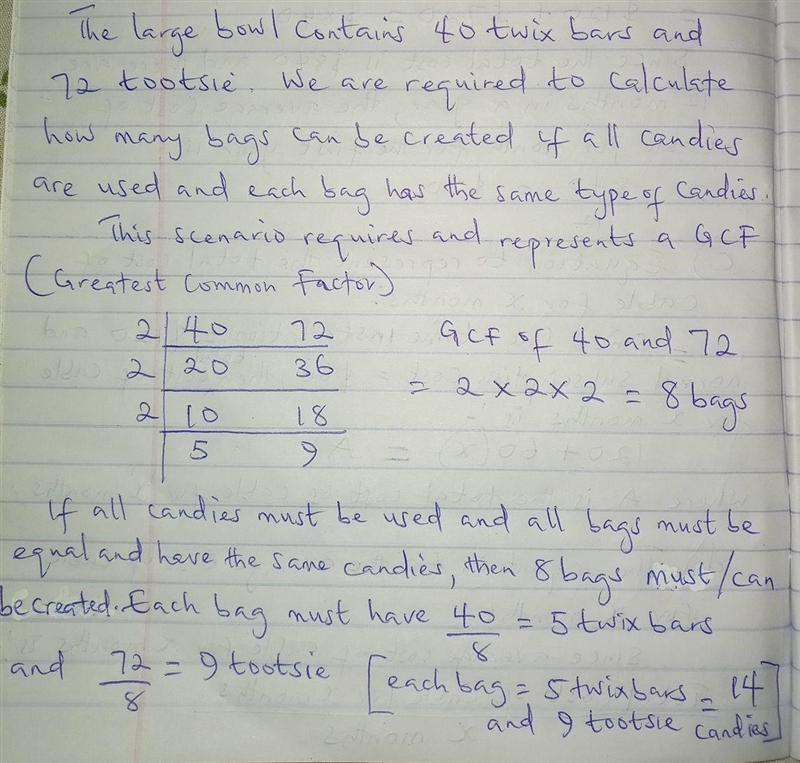 The large bowl contains 40 twix bars and
72 tootsie. We are required to calculate
how many bags can be created if all candies
are used and each bag has the same type of candies.
This scenario requires and represents a GCF
(Greatest Common Factor)
2 | 40 72
2 | 20 36
2 | 10 18
5 9
GCF of 40 and 72
= 2 × 2 × 2 = 8 bags
If all candies must be used and all bags must be
equal and have the same candies, then 8 bags must/can
be created. Each bag must have 40/8 = 5 twix bars
and 72/8 = 9 tootsie [each bag = 5 twix bars and 9 tootsie = 14 candies]